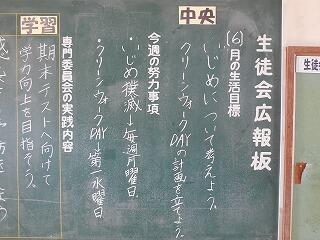 生徒会広報板
中央
(6)月の生活目標
いじめについて考えよう。
クリーンウォークDAYの計画を立てよう。
今週の努力事項
・いじめ撲滅→毎週月曜日
・クリーンウォークDAY→第一水曜日
学習
専門委員会の実践内容
期末テストへ向けて
学力向上を目指そう。
生徒会